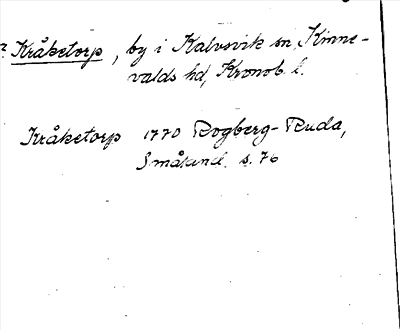 ? Kråketorp, by i Kalvsvik sn, Kinne-
valds hd, Kronob. l.
Kråketorp 1770 Rogberg-Ruda,
Småland. s. 76